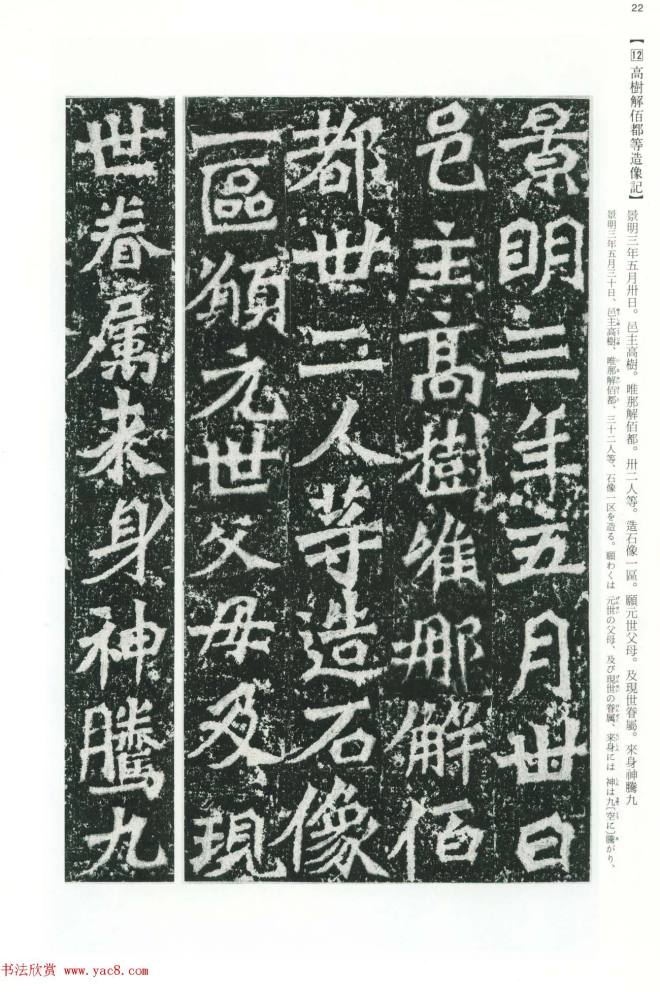 22
【12高樹解佰都等造像記】
景明三年五月卅日。邑主高樹。唯那解佰都。卅二人等。造石像一區。願元世父母。及現世眷屬。來身神騰九
景明三年五月三十日、邑主高樹、唯那解佰都、三十二人等、石像一区を造る。願わくは 元世の父母、及び現世の眷属、来身には 神は九〔空に〕騰がり、
景明三年五月卅日
邑主髙樹維那解佰
都卅二人等造石像
一區願元世父母及現
世眷属来身神騰九
书法欣赏 www.yac8.com